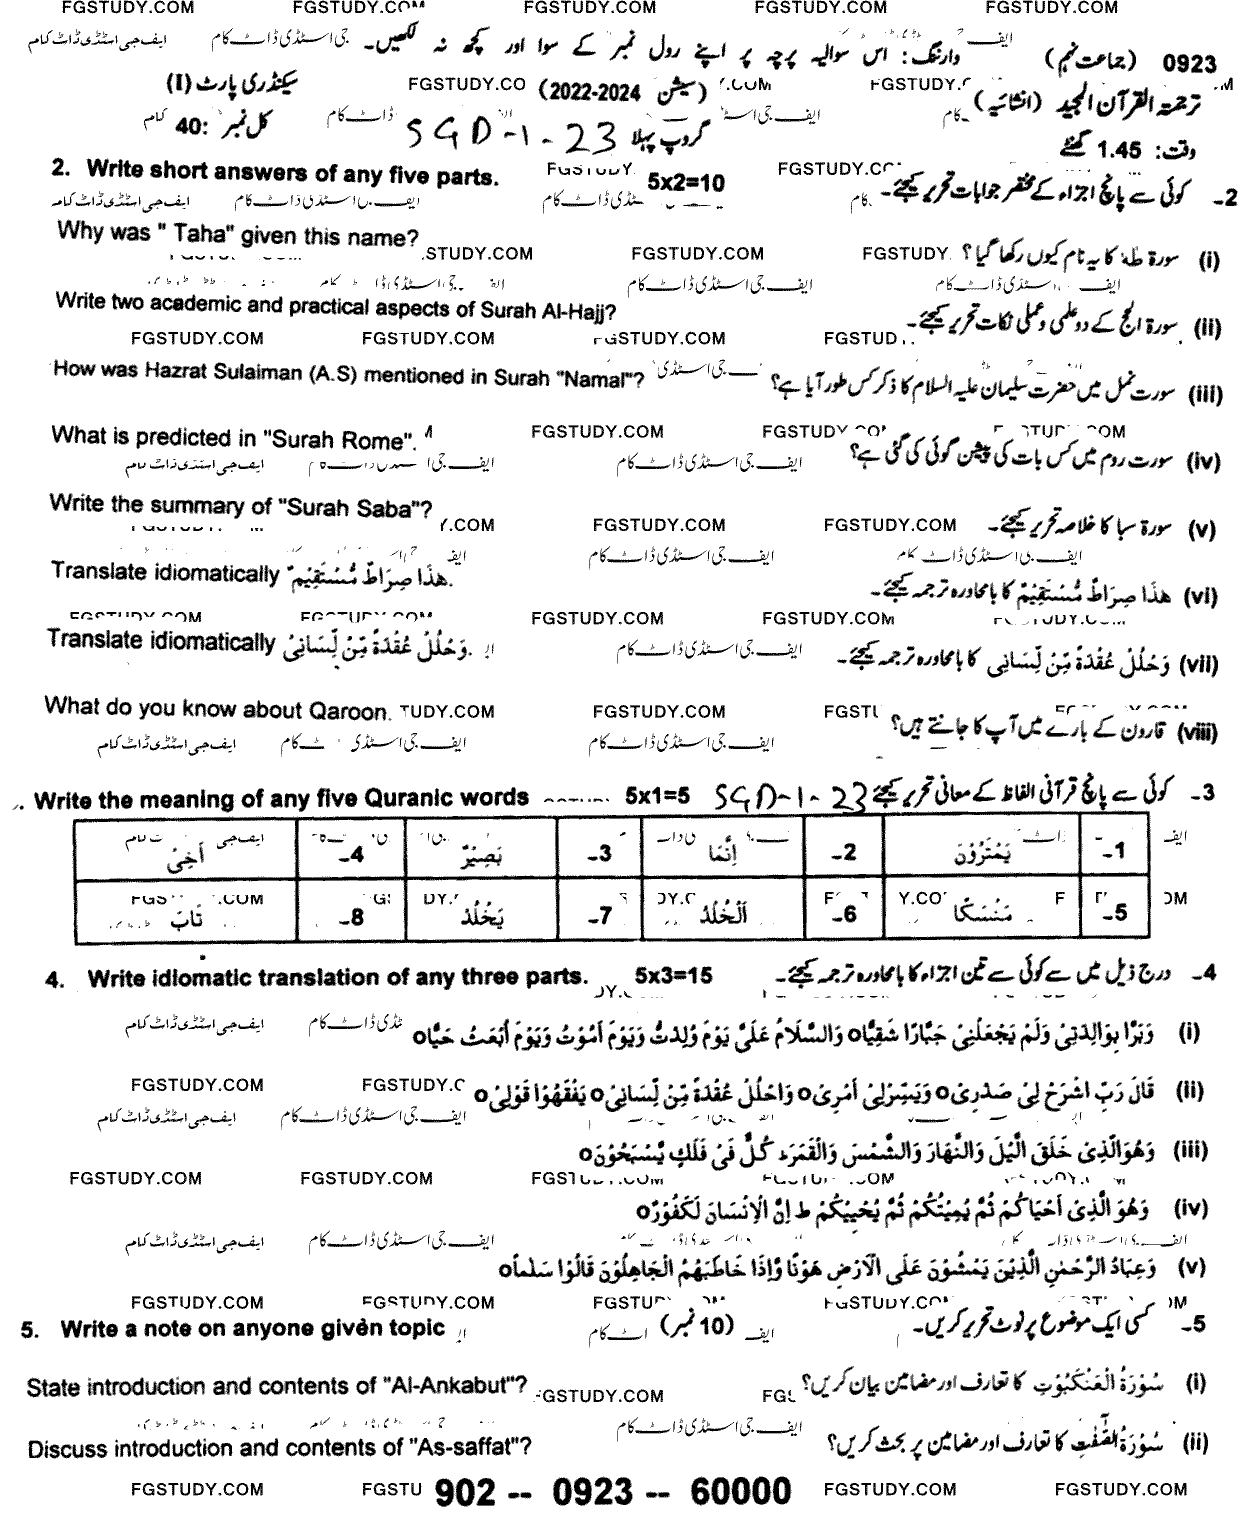 0923 (جماعت نہم) وارننگ: اس سوالیہ پرچہ پر اپنے رول نمبر کے سوا اور کچھ نہ لکھیں۔
ترجمۃ القرآن المجید (انشائیہ) (سیشن 2022-2024) سیکنڈری پارٹ (I)
وقت: 1.45 گھنٹے گروپ پہلا SGD-1-23 کل نمبر :40
2. Write short answers of any five parts. 5x2=10 2۔ کوئی سے پانچ اجزاء کے مختصر جوابات تحریر کیجئے۔
Why was " Taha" given this name? (i) سورۃ طہٰ کا یہ نام کیوں رکھا گیا ؟
Write two academic and practical aspects of Surah Al-Hajj? (ii) سورۃ الحج کے دو علمی و عملی نکات تحریر کیجئے۔
How was Hazrat Sulaiman (A.S) mentioned in Surah "Namal"? (iii) سورت نمل میں حضرت سلیمان علیہ السلام کا ذکر کس طور آیا ہے؟
What is predicted in "Surah Rome". (iv) سورت روم میں کس بات کی پیشن گوئی کی گئی ہے؟
Write the summary of "Surah Saba"? (v) سورۃ سبا کا خلاصہ تحریر کیجئے۔
Translate idiomatically هٰذَا صِرَاطٌ مُّسْتَقِيْمٌ. (vi) هٰذَا صِرَاطٌ مُّسْتَقِيْمٌ کا بامحاورہ ترجمہ کیجئے۔
Translate idiomatically وَحْلُلْ عُقْدَةً مِّنْ لِّسَانِیْ. (vii) وَحْلُلْ عُقْدَةً مِّنْ لِّسَانِی کا بامحاورہ ترجمہ کیجئے۔
What do you know about Qaroon. (viii) قارون کے بارے میں آپ کا جانتے ہیں؟
. Write the meaning of any five Quranic words 5x1=5 SGD-1-23 3۔ کوئی سے پانچ قرآنی الفاظ کے معانی تحریر کیجئے
1۔ يَمْتَرُوْنَ 2۔ اِنَّمَا 3۔ بَصِيْرٌ 4۔ اَخِیْ
5۔ مَنْسَكًا 6۔ اَلْخُلْدُ 7۔ يَخْلُدْ 8۔ تَابَ
4. Write idiomatic translation of any three parts. 5x3=15 4۔ درج ذیل میں سے کوئی سے تین اجزاء کا بامحاورہ ترجمہ کیجئے۔
(i) وَبَرًّا بِوَالِدَتِیْ وَلَمْ يَجْعَلْنِیْ جَبَّارًا شَقِيًّاo وَالسَّلَامُ عَلَیَّ يَوْمَ وُلِدْتُّ وَيَوْمَ اَمُوْتُ وَيَوْمَ اُبْعَثُ حَيًّاo
(ii) قَالَ رَبِّ اشْرَحْ لِیْ صَدْرِیْo وَيَسِّرْلِیْ اَمْرِیْo وَاحْلُلْ عُقْدَةً مِّنْ لِّسَانِیْo يَفْقَهُوْا قَوْلِیْo
(iii) وَهُوَالَّذِیْ خَلَقَ الَّيْلَ وَالنَّهَارَ وَالشَّمْسَ وَالْقَمَرَ كُلٌّ فِیْ فَلَكٍ يَّسْبَحُوْنَo
(iv) وَهُوَ الَّذِیْ اَحْيَاكُمْ ثُمَّ يُمِيْتُكُمْ ثُمَّ يُحْيِيْكُمْ ط اِنَّ الْاِنْسَانَ لَكَفُوْرٌo
(v) وَعِبَادُ الرَّحْمٰنِ الَّذِيْنَ يَمْشُوْنَ عَلَی الْاَرْضِ هَوْنًا وَّاِذَا خَاطَبَهُمُ الْجَاهِلُوْنَ قَالُوْا سَلٰمًاo
5. Write a note on anyone given topic (10 نمبر) 5۔ کسی ایک موضوع پر نوٹ تحریر کریں۔
State introduction and contents of "Al-Ankabut"? (i) سُوْرَةُ الْعَنْكَبُوْتِ کا تعارف اور مضامین بیان کریں؟
Discuss introduction and contents of "As-saffat"? (ii) سُوْرَةُ الصّٰٓفّٰتِ کا تعارف اور مضامین پر بحث کریں؟
902 -- 0923 -- 60000